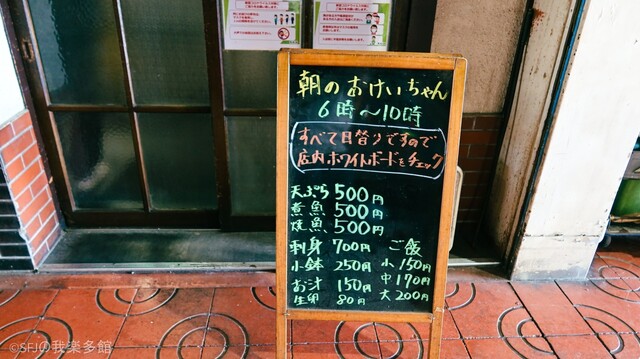 朝のおけいちゃん
6時～10時
すべて日替りですので
店内ホワイトボードをチェック
天ぷら 500円
煮魚 500円
焼魚 500円
刺身 700円
小鉢 250円
お汁 150円
生卵 80円
ご飯
小 150円
中 170円
大 200円
©SFJ@我樂多館